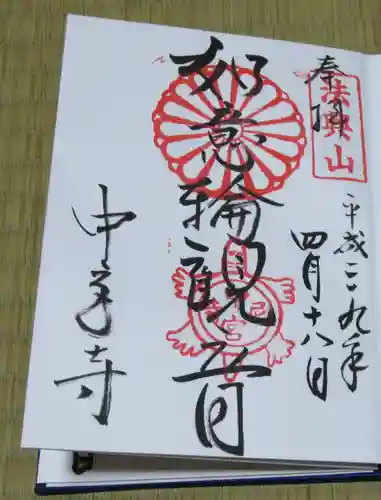 奉拝
法興山
平成二九年
四月十八日
如意輪観音
中宮寺